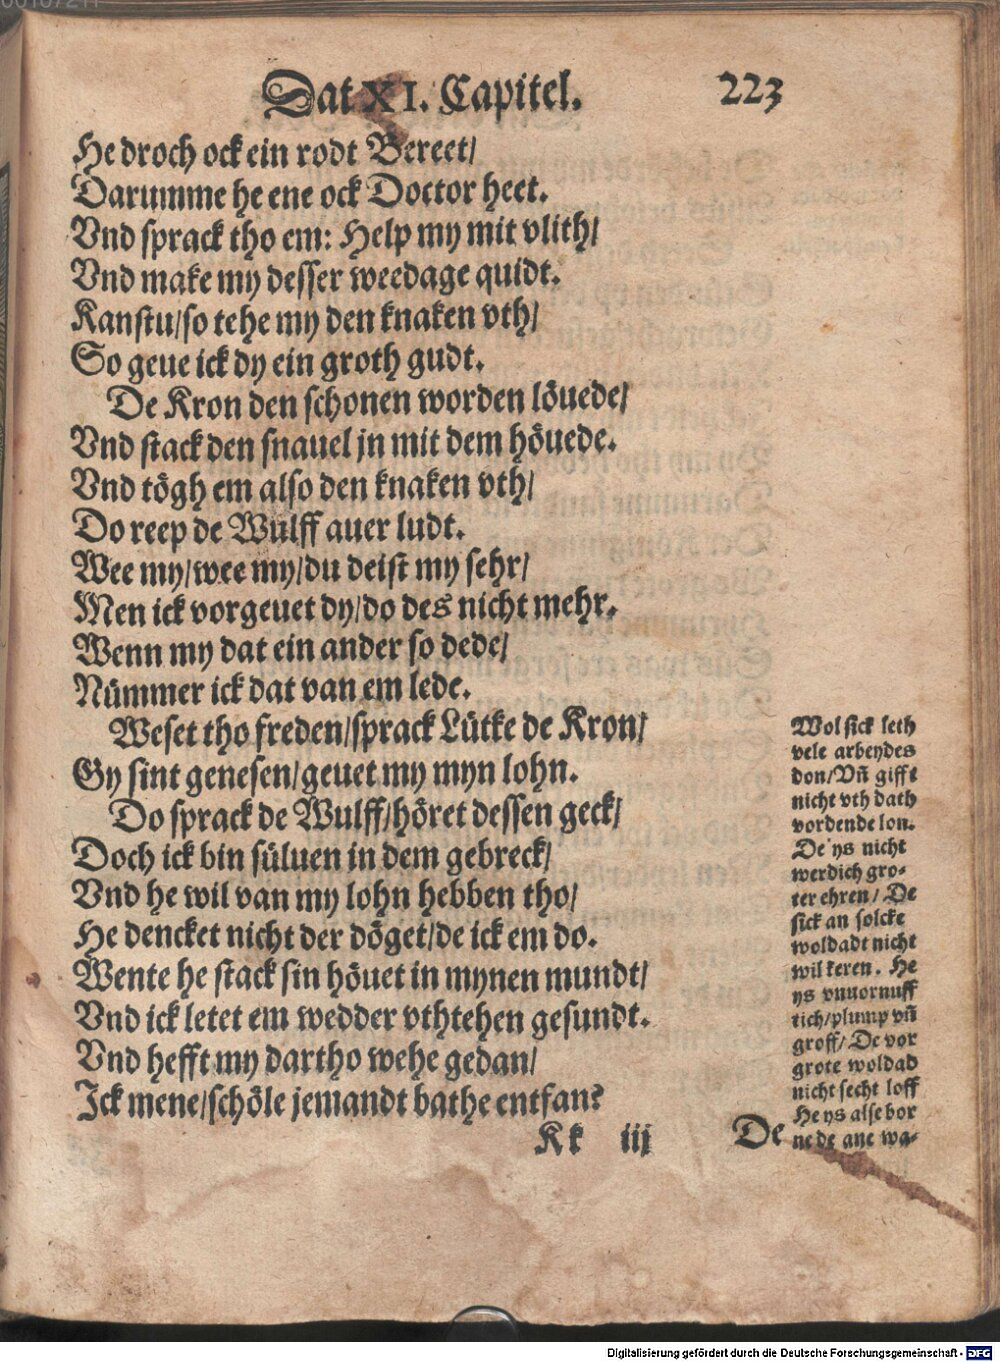 Dat XI. Capitel. 223
He droch ock ein rodt Bereet/
Darumme he ene ock Doctor heet.
Vnd sprack tho em: Help my mit vlith/
Vnd make my desser weedage quidt.
Kanstu/so tehe my den knaken vth/
So geue ick dy ein groth gudt.
De Kron den schonen worden löuede/
Vnd stack den snauel jn mit dem höuede.
Vnd tögh em also den knaken vth/
Do reep de Wulff auer ludt.
Wee my/wee my/du deist my sehr/
Men ick vorgeuet dy/do des nicht mehr.
Wenn my dat ein ander so dede/
Nümmer ick dat van em lede.
Weset tho freden/sprack Lütke de Kron/
Gy sint genesen/geuet my myn lohn.
Do sprack de Wulff/höret dessen geck/
Doch ick bin süluen in dem gebreck/
Vnd he wil van my lohn hebben tho/
He dencket nicht der döget/de ick em do.
Wente he stack sin höuet in mynen mundt/
Vnd ick letet em wedder vthtehen gesundt.
Vnd hefft my dartho wehe gedan/
Ick mene/schöle jemandt bathe entfan?
Kk iij De
Wol sick leth
vele arbeydes
don/Vñ gifft
nicht vth dath
vordende lon.
De ys nicht
werdich gro-
ter ehren/ De
sick an solcke
woldadt nicht
wil keren. He
ys vnuornuff
tich/plump vñ
groff/ De vor
grote woldad
nicht secht loff
He ys alse bor
ne de ane wa-
Digitalisierung gefördert durch die Deutsche Forschungsgemeinschaft - DFG